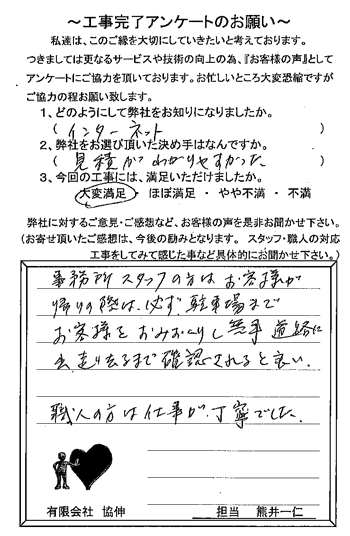 ～工事完了アンケートのお願い～
私達は、このご縁を大切にしていきたいと考えております。
つきましては更なるサービスや技術の向上の為、『お客様の声』として
アンケートにご協力を頂いております。お忙しいところ大変恐縮ですが
ご協力の程お願い致します。
1、どのようにして弊社をお知りになりましたか。
( インターネット )
2、弊社をお選び頂いた決め手はなんですか。
( 見積がわかりやすかった )
3、今回の工事には、満足いただけましたか。
大変満足 ・ ほぼ満足 ・ やや不満 ・ 不満
弊社に対するご意見・ご感想など、お客様の声を是非お聞かせ下さい。
(お寄せ頂いたご感想は、今後の励みとなります。 スタッフ・職人の対応
工事をしてみて感じた事など具体的にお聞かせ下さい。)
事務所スタッフの方はお客様が
帰りの際は、必ず駐車場まで
お客様をおみおくりし無事道路に
走り去るまで確認されると良い。
職人の方は仕事が丁寧でした。
有限会社 協伸
担当 熊井一仁